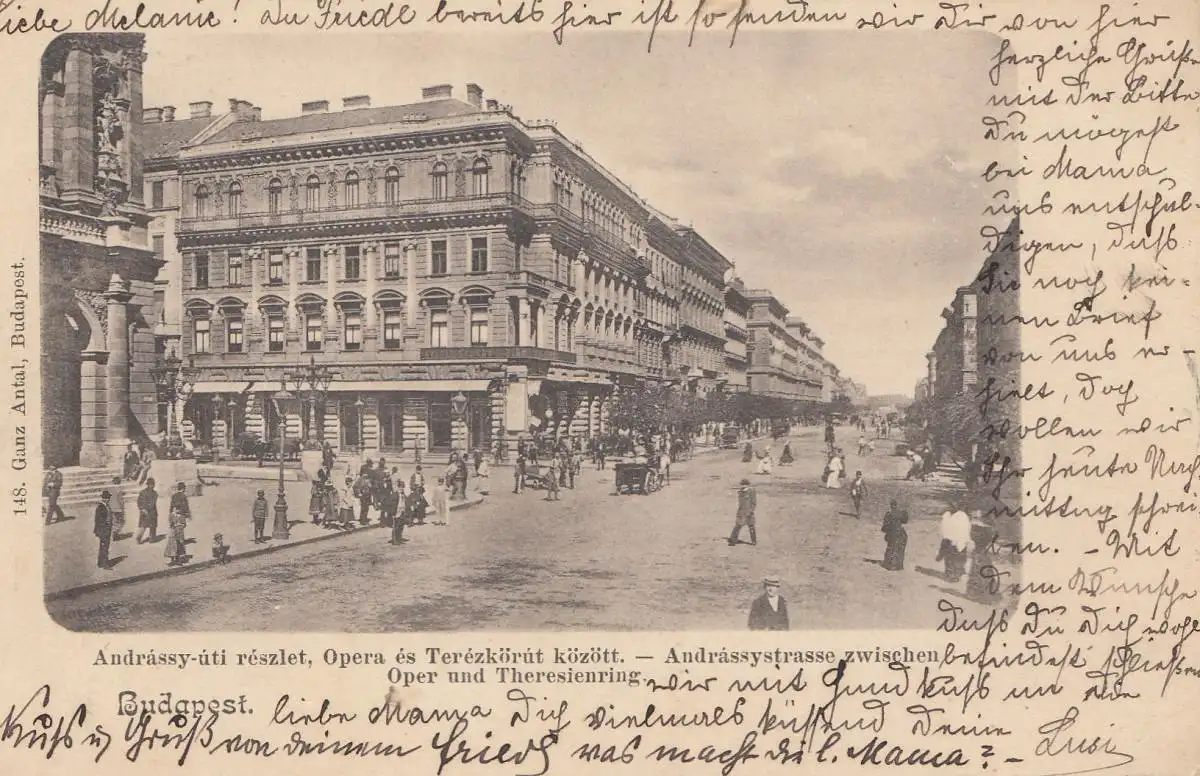 Liebe Melanie! Da Friedl bereits hier ist so senden wir Dir von hier
herzliche Grüße
mit der Bitte
Du mögest
bei Mama
uns entschul-
digen, daß
Sie noch kei-
nen Brief
von uns er
hielt, doch
wollen wir
Ihr heute Nach
mittag schrei
ben. - Mit
dem Wunsche
daß Du Dich wohl
befindest schließen
wir mit Handkuß an die
liebe Mama Dich vielmals küssend Deine
Lusi
Kuß u Gruß von deinem Friedl was macht die l. Mama? -
148. Ganz Antal, Budapest.
Andrássy-úti részlet, Opera és Terézkörút között. — Andrássystrasse zwischen
Oper und Theresienring.
Budapest.